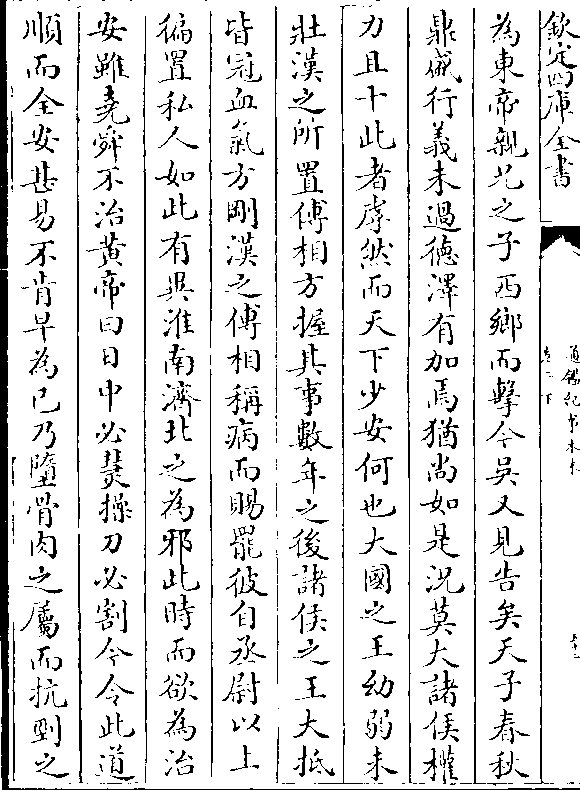 欽定四庫全書
為東帝親兄之子西鄉而擊今吳又見告矣天子春秋
鼎盛行義未過德澤有加焉猶尚如是况莫大諸侯權
力且十此者虖然而天下少安何也大國之王幼弱未
壯漢之所置傅相方握其事數年之後諸侯之王大抵
皆冠血氣方剛漢之傅相稱病而賜罷彼自丞尉以上
徧置私人如此有異淮南濟北之為邪此時而欲為治
安雖堯舜不治黄帝曰日中必熭操刀必割今令此道
順而全安甚易不肯早為已乃墮骨肉之屬而抗剄之
通鑑紀事本末
卷二下